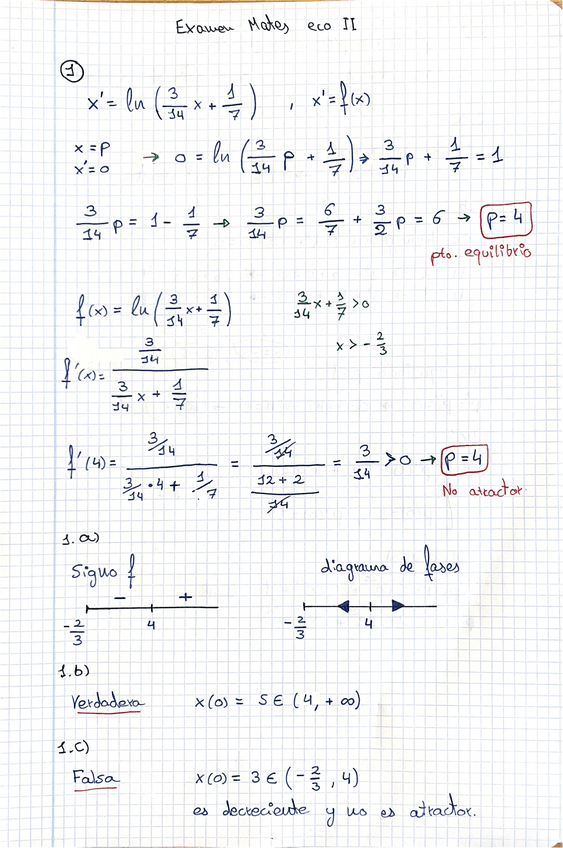 Examen Mates eco II
1
x' = ln (3/14 x + 1/7) , x' = f(x)
x = p
x' = 0 → 0 = ln (3/14 p + 1/7) → 3/14 p + 1/7 = 1
3/14 p = 1 - 1/7 → 3/14 p = 6/7 + 3/2 p = 6 → p = 4
pto. equilibrio
f(x) = ln (3/14 x + 1/7) 3/14 x + 1/7 > 0
x > - 2/3
f'(x) = (3/14) / (3/14 x + 1/7)
f'(4) = (3/14) / (3/14 · 4 + 1/7) = (3/14) / ((12 + 2)/14) = 3/14 > 0 → p = 4
No atractor
1.a)
Signo f diagrama de fases
- +
-2/3 4 -2/3 4
1.b)
Verdadera x(0) = 5 ∈ (4, +∞)
1.c)
Falsa x(0) = 3 ∈ (-2/3, 4)
es decreciente y no es atractor.